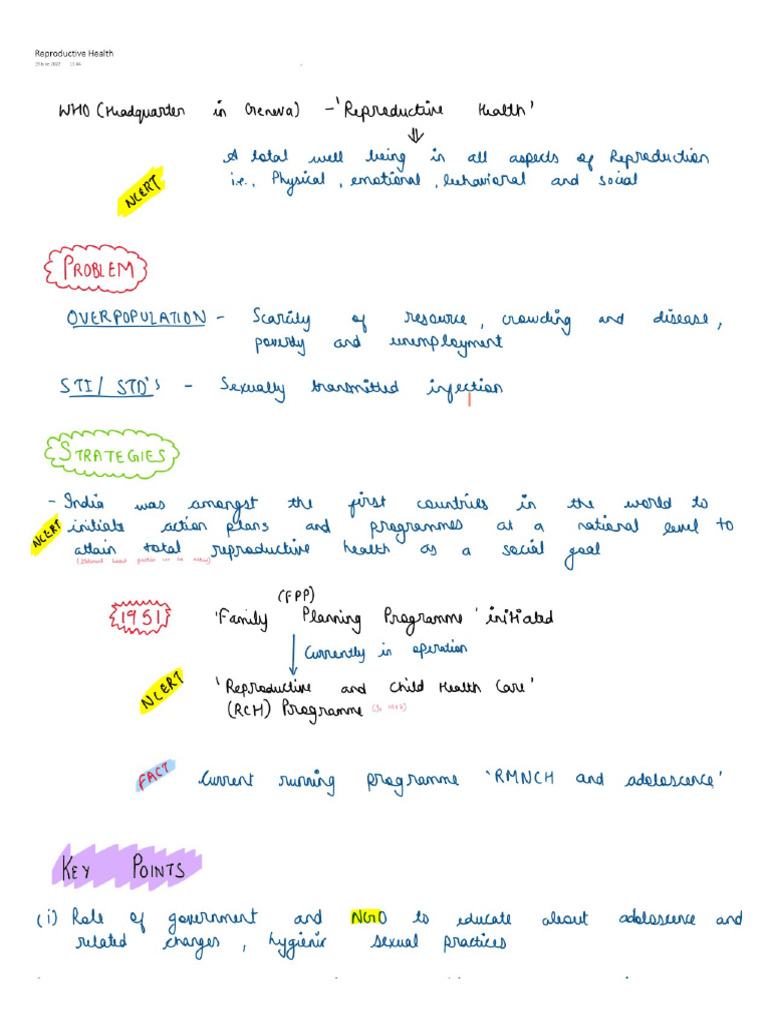 Reproductive Health
WHO (Headquarter in Geneva) - 'Reproductive Health'
A total well being in all aspects of Reproduction
i.e., Physical, emotional, behavioral and social
NCERT
PROBLEM
OVERPOPULATION - Scarcity of resource, crowding and disease,
poverty and unemployment
STI/ STD's - Sexually transmitted infection
STRATEGIES
- India was amongst the first countries in the world to
NCERT initiate action plans and programmes at a national level to
attain total reproductive health as a social goal
(FPP)
1951 'Family Planning Programme' initiated
Currently in operation
NCERT 'Reproductive and Child Health Care'
(RCH) Programme
FACT Current running programme 'RMNCH and adolescence'
KEY POINTS
(i) Role of government and NGO to educate about adolescence and
related changes, hygienic sexual practices